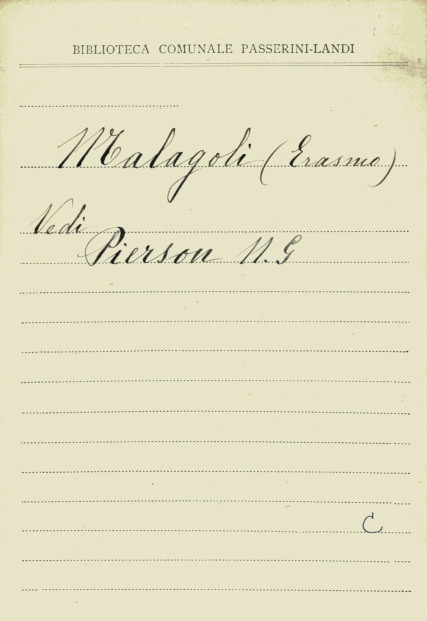 BIBLIOTECA COMUNALE PASSERINI-LANDI
Malagoli (Erasmo)
Vedi
Pierson N. G
C